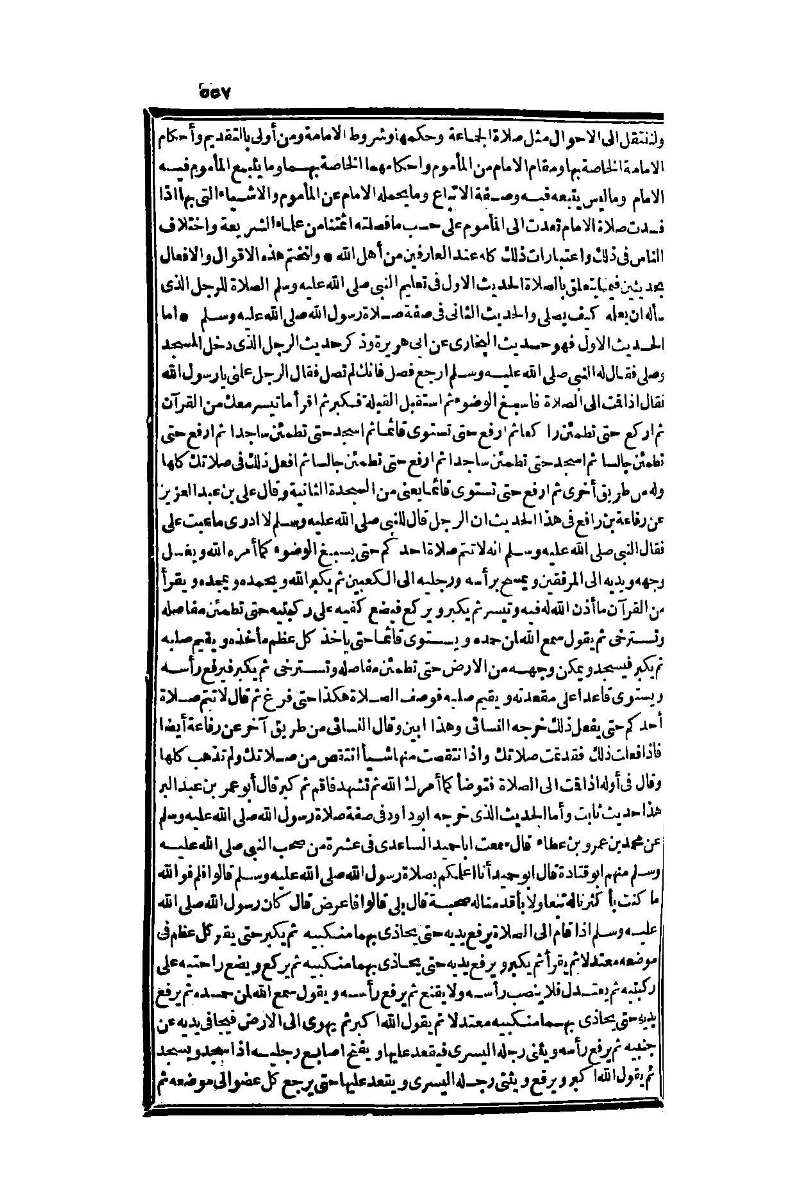 ٥٥٧
ولننتقل الى الاحوال مثل صلاة الجماعة وحكمها وشروط الامامة ومن أولى بالتقديم وأحكام
الامامة الخاصة بها ومقام الامام من المأموم واحكامهما الخاصة بهما وما يتبع المأموم فيه
الامام وماليس يتبعه فيه وصفة الاتباع وما يحمله الامام عن المأموم والاشياء التى بها اذا
فسدت صلاة الامام تعدت الى المأموم على حسب ما فصلته ائمتنا من علماء الشريعة واختلاف
الناس فى ذلك واعتبارات ذلك كله عند العارفين من أهل الله * ولنختم هذه الاقوال والافعال
بحديثين فيما يتعلق بالصلاة الحديث الاول فى تعليم النبى صلى الله عليه وسلم الصلاة للرجل الذى
سأله ان يعلمه كيف يصلى والحديث الثانى فى صفة صلاة رسول الله صلى الله عليه وسلم * اما
الحديث الاول فهو حديث البخارى عن ابى هريرة وذكر حديث الرجل الذى دخل المسجد
وصلى فقال له النبى صلى الله عليه وسلم ارجع فصل فانك لم تصل فقال الرجل علمنى يارسول الله
فقال اذا قت الى الصلاة فاسبغ الوضوء ثم استقبل القبلة فكبر ثم اقرأ ما تيسر معك من القرآن
ثم اركع حتى تطمئن راكعا ثم ارفع حتى تستوى قائما ثم اسجد حتى تطمئن ساجدا ثم ارفع حتى
تطمئن جالسا ثم اسجد حتى تطمئن ساجدا ثم ارفع حتى تطمئن جالسا ثم افعل ذلك فى صلاتك كلها
وله من طريق أخرى ثم ارفع حتى تستوى قائما يعنى من السجدة الثانية وقال على بن عبد العزيز
عن رفاعة بن رافع فى هذا الحديث ان الرجل قال للنبى صلى الله عليه وسلم لا ادرى ما عبت على
فقال النبى صلى الله عليه وسلم انه لا تتم صلاة احدكم حتى يسبغ الوضوء كما أمره الله ويغسل
وجهه ويديه الى المرفقين ويمسح برأسه ورجليه الى الكعبين ثم يكبر الله ويحمده ويمجده ويقرأ
من القرآن ما أذن الله له فيه وتيسر ثم يكبر ويركع فيضع كفيه على ركبتيه حتى تطمئن مفاصله
وتسترخى ثم يقول سمع الله لمن حمده ويستوى قائما حتى ياخذ كل عظم مأخذه ويقيم صلبه
ثم يكبر فيسجد ويمكن وجهه من الارض حتى تطمئن مفاصله وتسترخى ثم يكبر فيرفع رأسه
ويستوى قاعدا على مقعدته ويقيم صلبه فوصف الصلاة هكذا حتى فرغ ثم قال لا تتم صلاة
أحدكم حتى يفعل ذلك خرجه النسائى وهذا ابين وقال النسائى من طريق آخر عن رفاعة أيضا
فاذا فعلت ذلك فقد تمت صلاتك واذا نتقصت منها شيأ انتقص من صلاتك ولم تذهب كلها
وقال فى أوله اذا قت الى الصلاة فتوضأ كما أمرك الله ثم تشهد فاقم ثم كبر قال أبو عمر بن عبد البر
هذا حديث ثابت وأما الحديث الذى خرجه ابو داود فى صفة صلاة رسول الله صلى الله عليه وسلم
عن محمد بن عمرو بن عطاء قال سمعت ابا حميد الساعدى فى عشرة من صحب النبى صلى الله عليه
وسلم منهم ابو قتادة قال ابو حميد أنا اعلمكم بصلاة رسول الله صلى الله عليه وسلم قالوا فلم فوالله
ما كنت بأكثرنا له تبعا ولا بأقدمنا له صحبة قال بلى قالوا فاعرض قال كان رسول الله صلى الله
عليه وسلم اذا قام الى الصلاة يرفع يديه حتى يحاذى بهما منكبيه ثم يكبر حتى يقر كل عظم فى
موضعه معتدلا ثم يقرأ ثم يكبر ويرفع يديه حتى يحاذى بهما منكبيه ثم يركع ويضع راحتيه على
ركبتيه ثم يعتدل فلا ينصب رأسه ولا يقنع ثم يرفع رأسه ويقول سمع الله لمن حمده ثم يرفع
يديه حتى يحاذى بهما منكبيه معتدلا ثم يقول الله اكبر ثم يهوى الى الارض فيجافى يديه عن
جنبيه ثم يرفع رأسه ويثنى رجله اليسرى فيقعد عليها ويفتح اصابع رجليه اذا سجد ويسجد
ثم يقول الله اكبر ويرفع ويثنى رجله اليسرى ويقعد عليها حتى يرجع كل عضو الى موضعه ثم